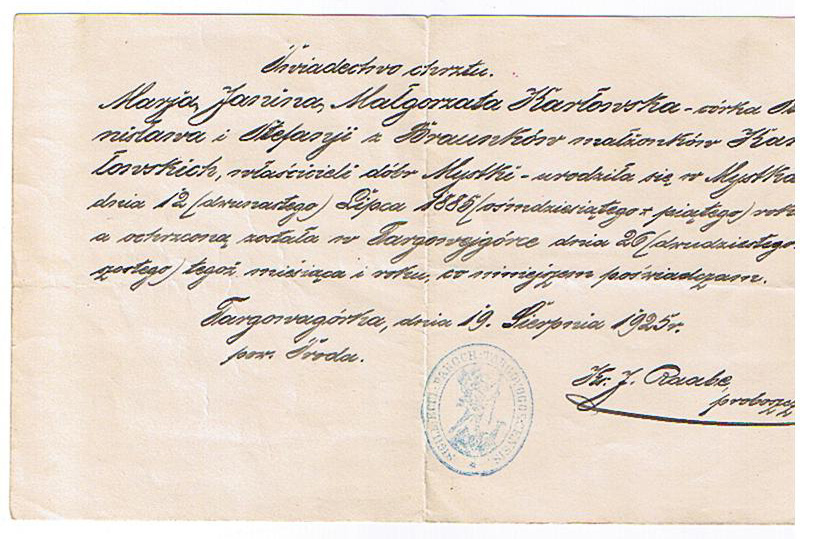 Świadectwo chrztu.
Marja, Janina, Małgorzata Karłowska - córka Sta
nisława i Stefanji z Braunków małżonków Kar
łowskich, właścicieli dóbr Mystki - urodziła się w Mystka
dnia 12 (dwunastego) Lipca 1885 (ośmdziesiątego piątego) roku
a ochrzconą została w Targowejgórce dnia 26 (dwudziestego
szóstego) tegoż miesiąca i roku, co niniejszem poświadczam.
Targowagórka, dnia 19. Sierpnia 1925 r.
pow. Środa.
Ks. J. Raabe,
proboszcz
SIGILL. ECCL. PAROCH.